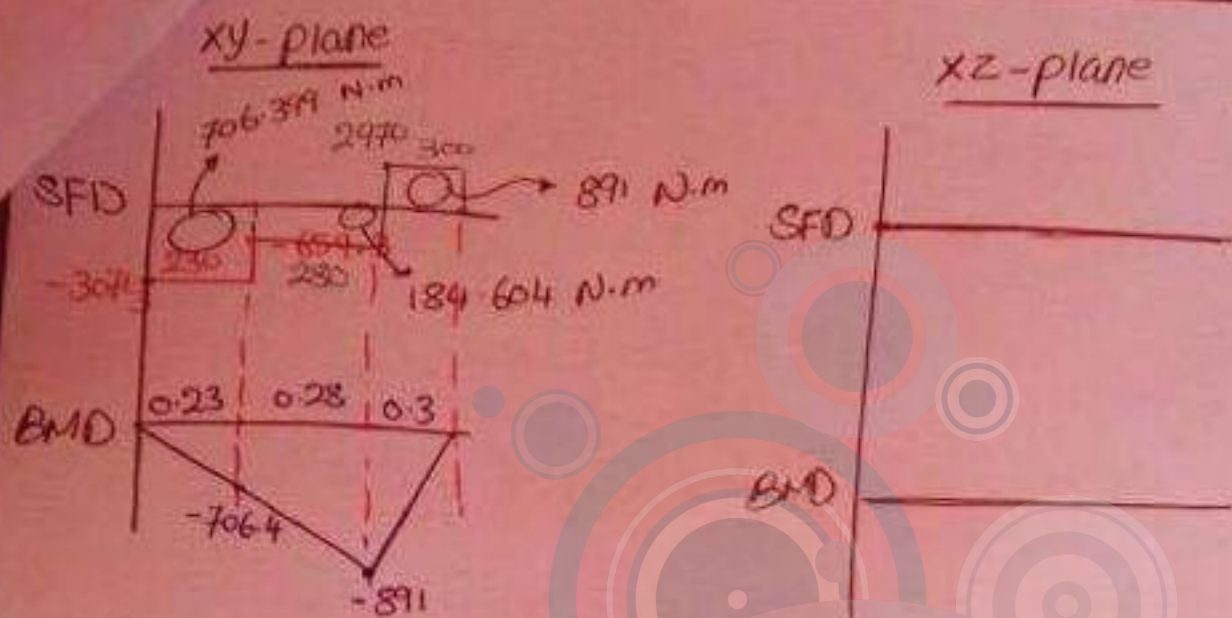 xy-plane
706.399 N.m
2970 300
SFD
891 N.m
230
280
184.604 N.m
BMD
0.23 0.28 0.3
-706.4
-891
xz-plane
SFD
BMD